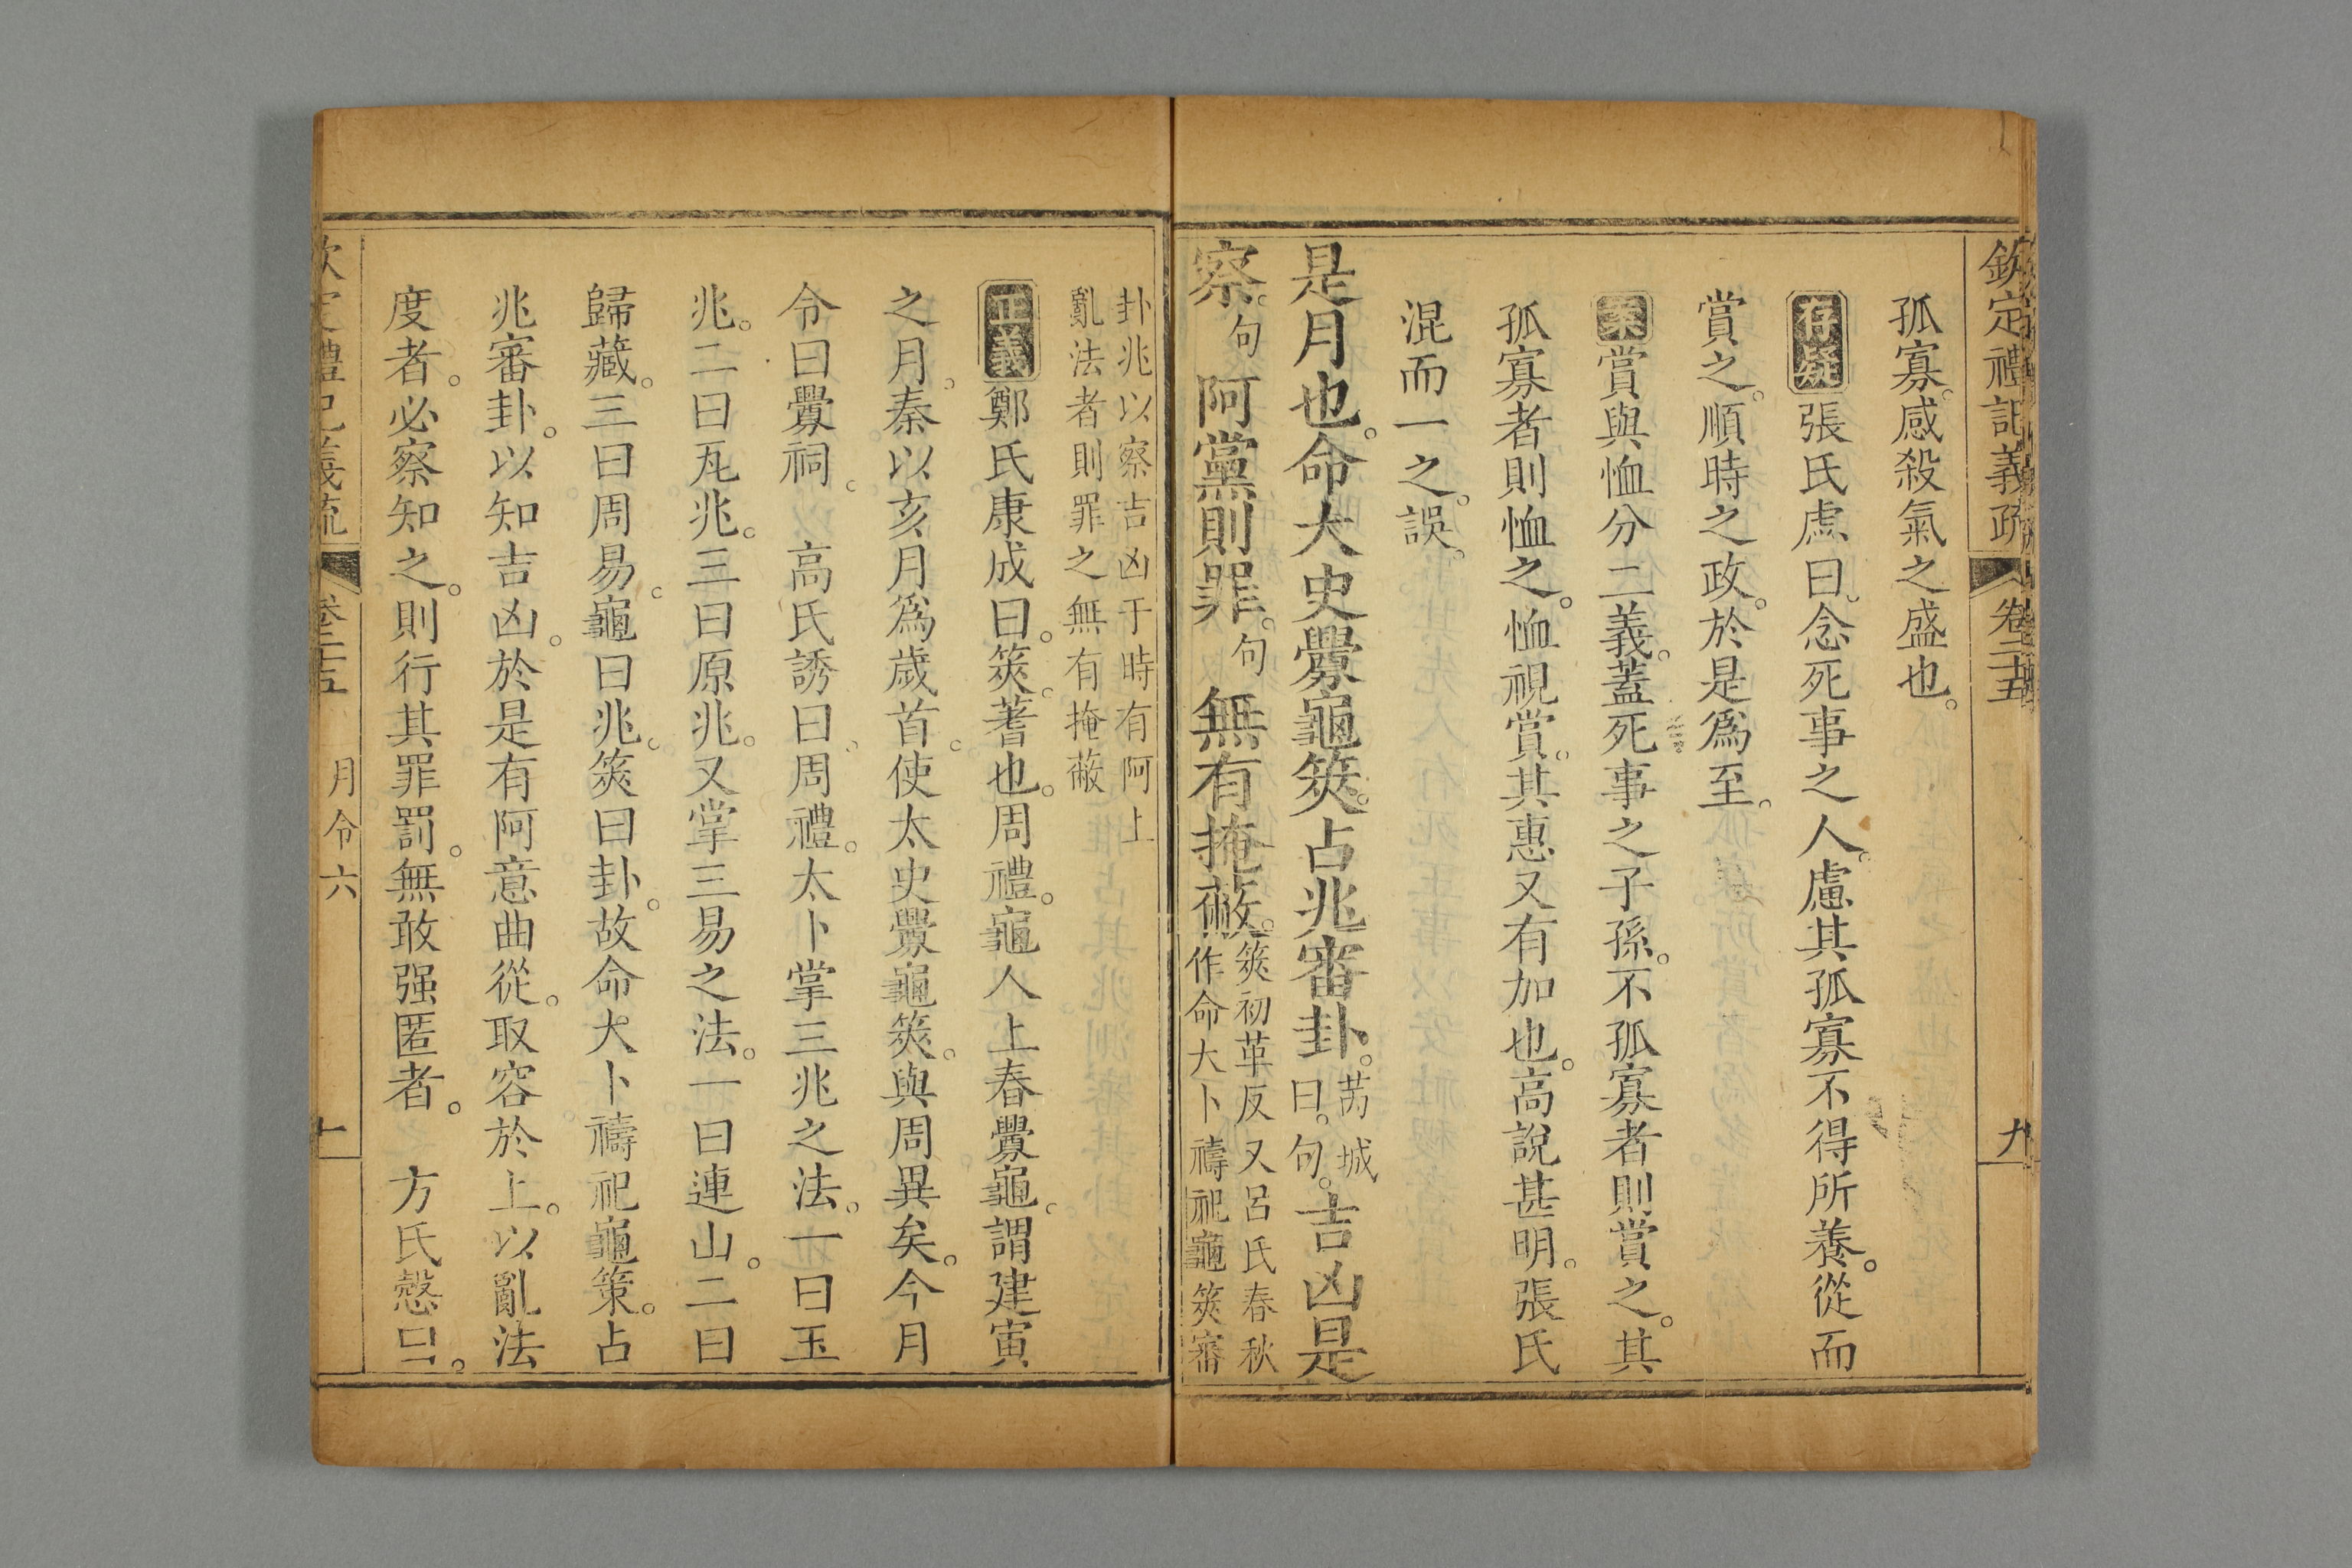 欽定禮記義疏 卷二十五 九
孤寡。感殺氣之盛也。
存疑 張氏虙曰。念死事之人。慮其孤寡不得所養。從而
賞之。順時之政。於是爲至。
案 賞與恤分二義。蓋死事之子孫。不孤寡者則賞之。其
孤寡者則恤之。恤視賞。其惠又有加也。高說甚明。張氏
混而一之。誤。
是月也。命大史釁龜筴。占兆審卦。曰。句。吉凶是
察。句 阿黨則罪。句 無有掩蔽。筴初革反又呂氏春秋
作命大卜禱祀龜筴審
卦兆以察吉凶于時有阿上
亂法者則罪之無有掩蔽
正義 鄭氏康成曰。筴。蓍也。周禮。龜人上春釁龜。謂建寅
之月。秦以亥月爲歲首。使太史釁龜筴。與周異矣。今月
令曰釁祠。 高氏誘曰。周禮。太卜掌三兆之法。一曰玉
兆。二曰瓦兆。三曰原兆。又掌三易之法。一曰連山。二曰
歸藏。三曰周易。龜曰兆。筴曰卦。故命大卜禱祀龜策。占
兆審卦。以知吉凶。於是有阿意曲從。取容於上。以亂法
度者。必察知之。則行其罪罰。無敢强匿者。 方氏慤曰。
欽定禮記義疏 卷二十五 月令六 十